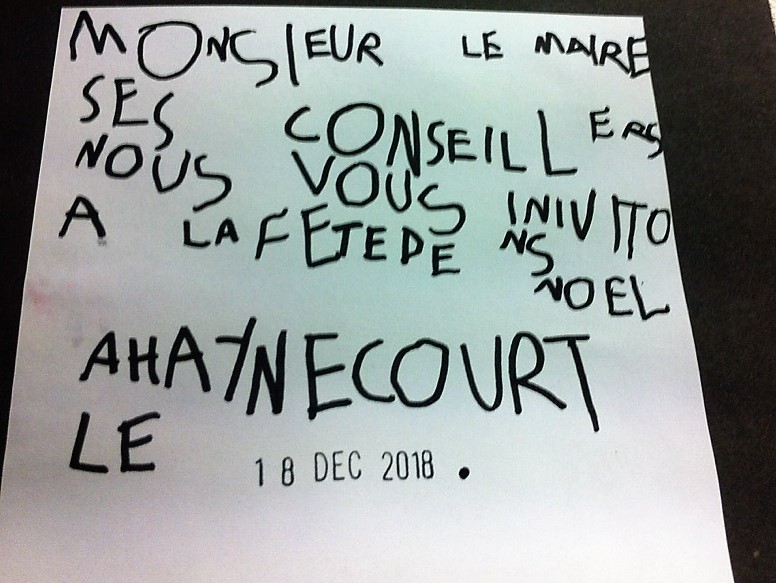 MONSIEUR LE MAIRE
SES CONSEILLERS
NOUS VOUS INIVITO
NS
A LA FETE DE
NOEL
A HAYNECOURT
LE 18 DEC 2018 .